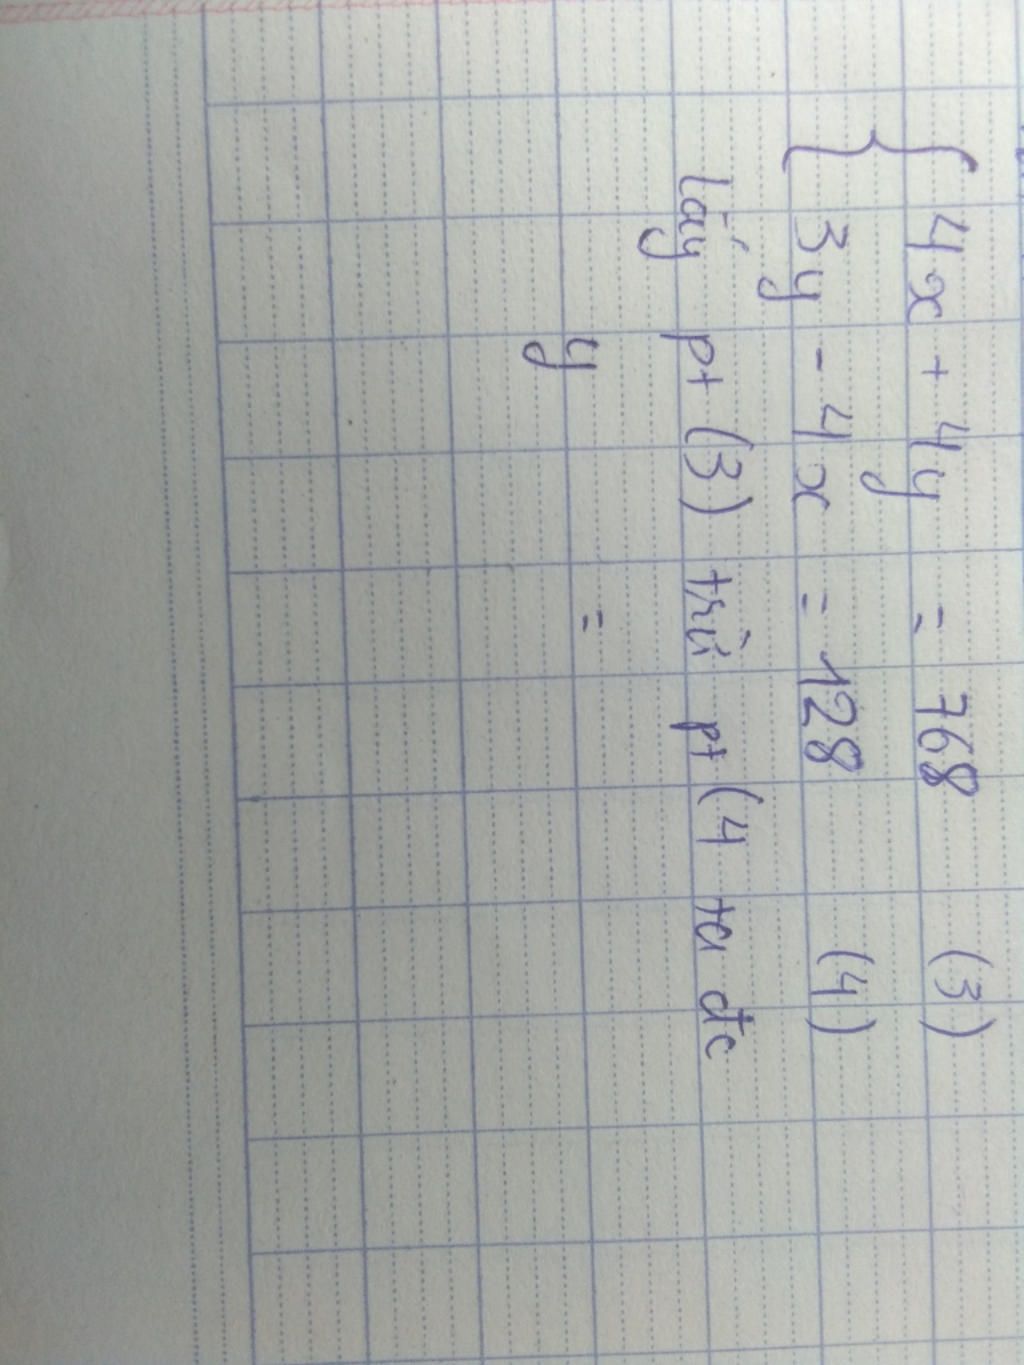 4x + 4y = 768 (3)
3y - 4x = 128 (4)
lấy pt (3) trừ pt (4 ta đc
y =